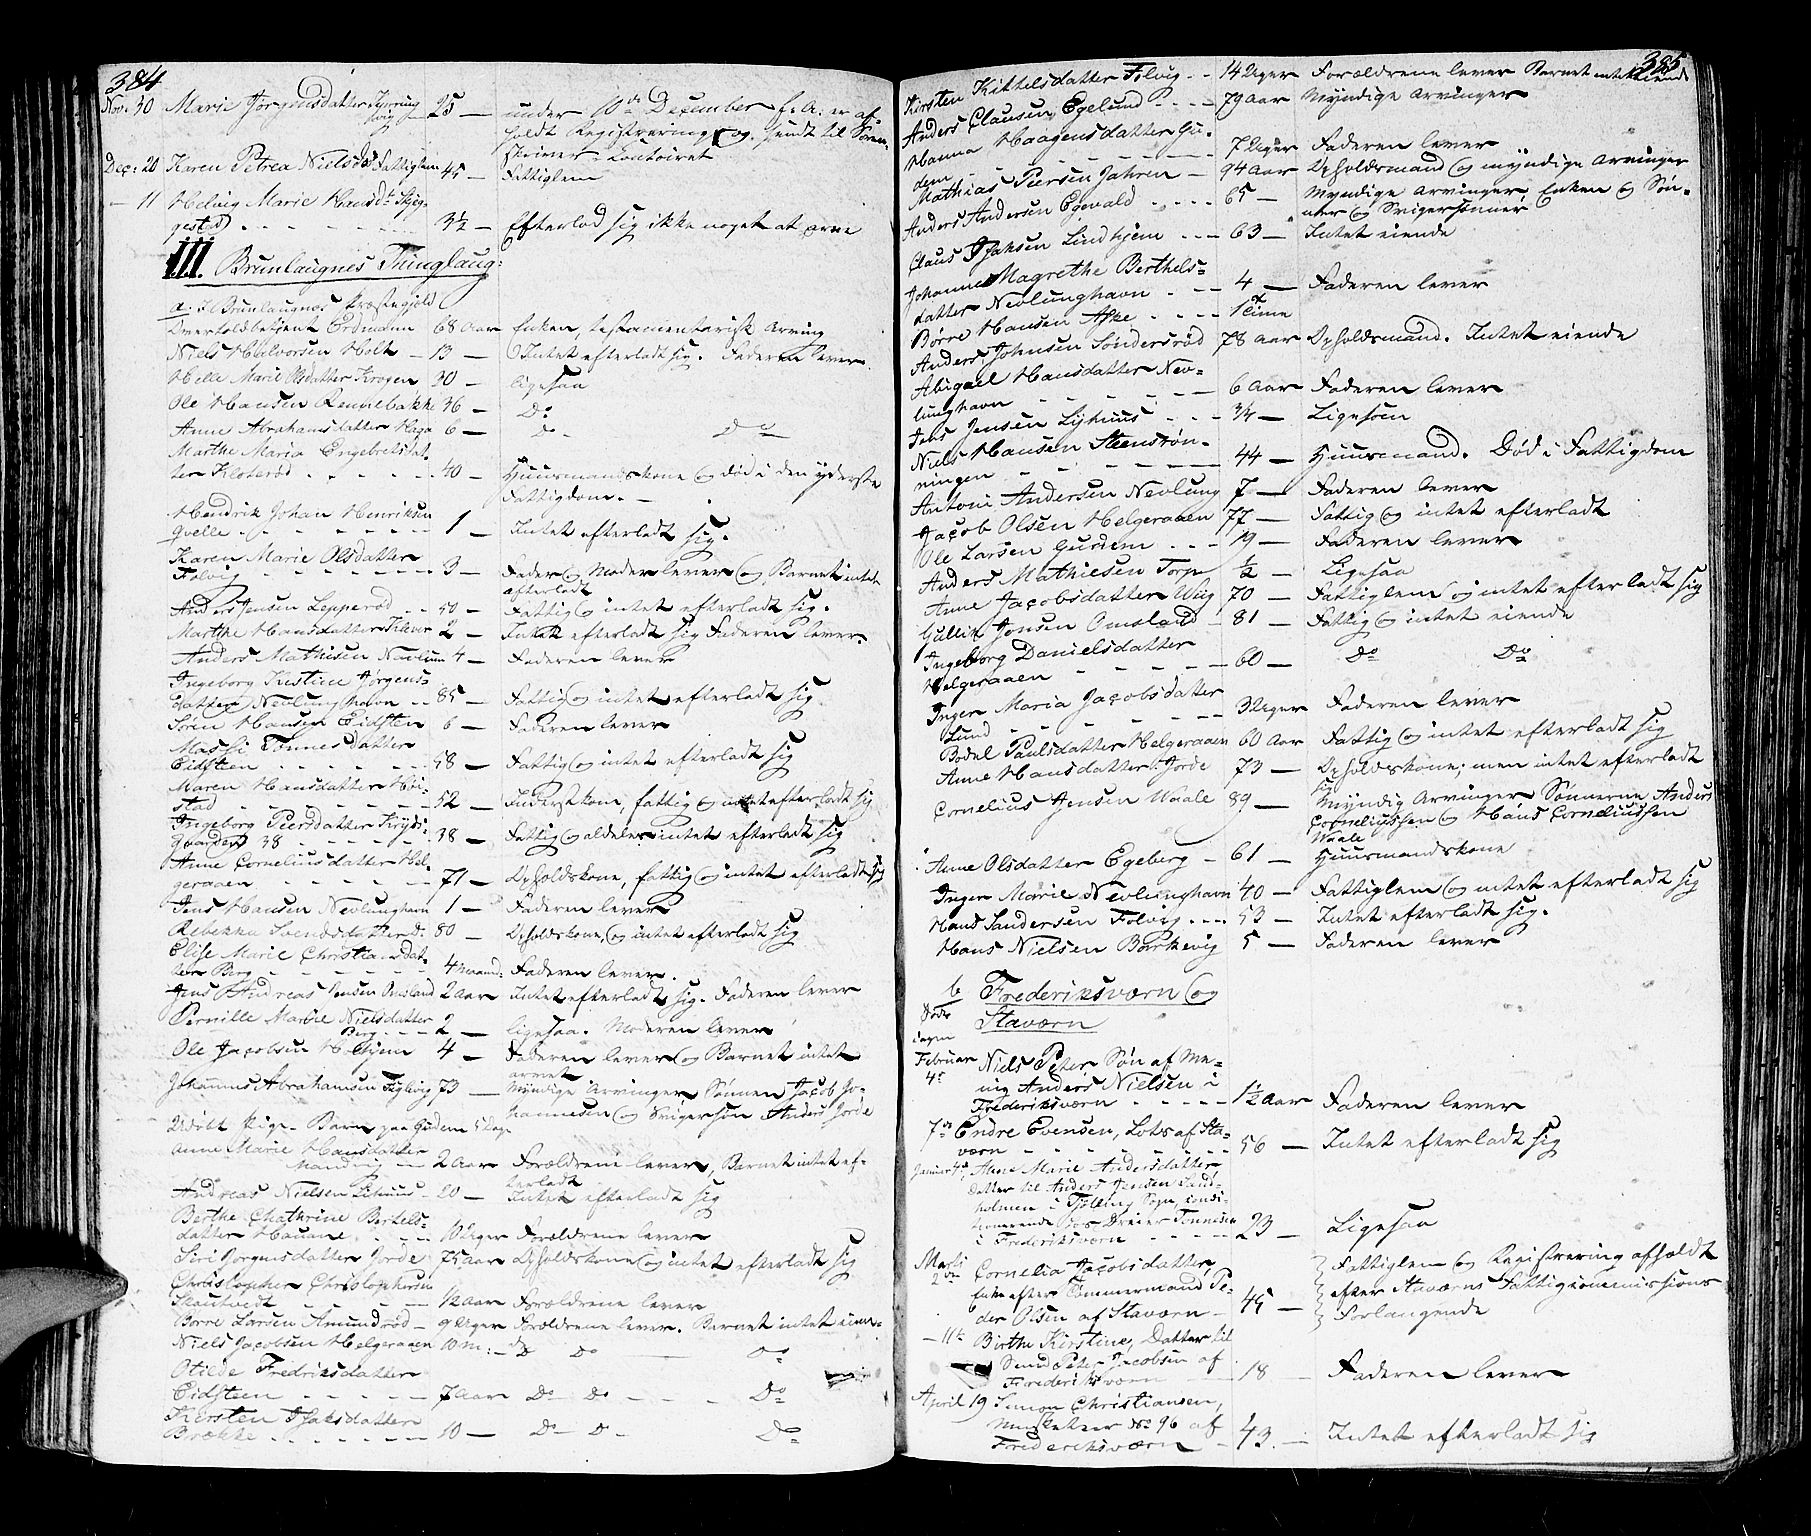 384
Nov: 30 Marie Jørgensdatter 25 — under 10de December f. A. er af-
holdt Registrering og sendt til Soren-
skriver-Contoiret
Dec: 20 Karen Petrea Nielsd: Fattiglem 45 — Fattiglem
— 11 Helvig Marie Hansd:
gested 3½ — Efterlod sig ikke noget at arve
III. Brunlaugnes Tinglaug:
a. I Brunlaugnes Præstegjeld
Overtoldbetjent Erdmann 68 Aar Enken, testamentarisk Arving
Niels Helvorsen Holt — 13 — Intet efterladt sig. Faderen lever
Helle Marie Olsdatter Krogen 30 — ligesaa
Ole Hansen Rennebakke 36 — Do
Anne Abrahamsdatter Haga 6 — Do Do
Marthe Maria Engebretsdat-
ter Kloterød 40 — Huusmandskone og død i den yderste
Fattigdom.
Hendrik Johan Henriksen
Qvelle 1 — Intet efterladt sig.
Karen Marie Olsdatter
Folvig 3 — Fader og Moder lever og Barnet intet
efterladt
Anders Jensen Lepperød 50 — Fattig og intet efterladt sig.
Marthe Hansdatter Klever 2 — Intet efterladt sig Faderen lever
Anders Mathisen Navlun 4 — Faderen lever
Ingeborg Kirstine Jørgens-
datter Nevlunghavn 85 — Fattig og intet efterladt sig
Sören Hansen Eidsten 6 — Faderen lever
Massi Tønnesdatter
Eidsteen 58 — Fattig og intet efterladt sig
Maren Hansdatter Høi-
stad 52 — Inderstkone, fattig og intet efterladt sig
Ingeborg Peersdatter
38 38 — Fattig og aldeles intet efterladt sig
Anne Corneliusdatter Hel-
geraaen 71 — Opholdskone, fattig og intet efterladt sig
Jens Hansen Nevlunghavn 1 — Faderen lever
Rebekka 80 — Opholdskone, og intet efterladt sig
Elise Marie Christiansdat-
ter Berg 4 Maand: Faderen lever.
Jens Andreas Jensen Omsland 2 Aar Intet efterladt sig. Faderen lever
Pernille Marie Nielsdatter
Berg 2 — ligesaa. Moderen lever
Ole Jacobsen Holtjem 4 — Faderen lever og Barnet intet
arvet
Johannes Abrahamsen 73 — Myndige Arvinger Sønnen Jacob Jo-
hannesen og Svigersøn Anders Jorde
Udøbt Pige-Barn paa Gudem 5 Dage
Anne Marie Hansdatter
Manvig 2 Aar Forældrene lever, Barnet intet ef-
terladt
Andreas Nielsen 20 — Intet efterladt sig
Berthe Cathrine Bertels-
datter Hauane 10 Uger Forældrene lever
Siri Jørgensdatter Jorde 75 Aar Opholdskone og intet efterladt sig
Christopher Christophersen
Skautvedt ½ Aar Forældrene lever
Børre Larsen Amundrød 9 Uger Forældrene lever. Barnet intet eien-
Niels Jacobsen Helgeraaen 10 M: Do Do Do
Otilde Fredriksdatter
Eidsteen 7 Aar Do Do Do
Kirsten Isaksdatter
Brække 10 — Do Do Do
385
Kirsten Kittelsdatter Folvig 14 Uger Forældrene lever Barnet intet eiende
Anders Clausen Egelund 79 Aar Myndige Arvinger
Hanna Haagensdatter Gu-
dem 7 Uger Faderen lever
Mathias Peersen Jahren 94 Aar Opholdsmand og myndige Arvinger
Anders Andersen Egevald 65 — Myndige Arvinger Enken og Søn-
ner og Svigersønner
Claus Isaksen Lindhjem 63 — Intet eiende
Johanne Magrethe Berthels-
datter Nevlunghavn 4 — Faderen lever
Børre Hansen Aske 1 Time
Anders Johnsen Søndersrød 78 Aar Opholdsmand. Intet eiende
Abigael Hansdatter Nev-
lunghavn 6 Aar Faderen lever
Jens Jensen 3/4 — Ligesaa
Niels Hansen Steensrøn-
ningen 44 — Huusmand. Død i Fattigdom
Antoni Andersen Nevlung 7 — Faderen lever
Jacob Olsen Helgeraaen 77 — Fattig og intet efterladt
Ole Larsen Gurdem 19 — Faderen lever
Anders Mathiesen Torp ½ — Ligesaa
Anne Jacobsdatter Wiig 70 — Fattiglem og intet efterladt sig
Gullik Jonsen Omsland 81 — Fattig og intet eiende
Ingeborg Danielsdatter
Helgeraaen 60 — Do Do
Inger Maria Jacobsdatter
Lund 3 Uger Faderen lever
Bodel Paulsdatter Helgeraaen 60 Aar Fattig og intet efterladt sig
Anne Hansdatter Jorde 73 — Opholdskone; men intet efterladt
sig
Cornelius Jensen Waale 89 — Myndig Arvinger Sønnerne Anders
Corneliussen og Hans Corneliussen
Waale
Anne Olsdatter Egeberg 61 — Huusmandskone
Inger Marie Nevlunghavn 40 — Fattiglem og intet efterladt sig
Hans Sandersen Folvig 53 — Intet efterladt sig.
Hans Nielsen Barkevig 5 — Faderen lever
b Frederiksværn og
Døds Staværn
dagen
Februar Niels Peter Søn af Me-
4de nig Anders Nielsen i
Frederiksværn 1½ Aar Faderen lever
7de Endre Evensen, Lots af Sta-
værn 56 — Intet efterladt sig
Januar 4de Anne Marie Andersdatter
Datter til Anders Jensen Sand-
holmen i Tjølling Sogn, condi-
tionerende hos Dreier Tønnesen
i Frederiksværn 23 — Ligesaa
Marti Cornelia Jacobsdatter, Fattiglem og Registrering afholdt
2den Enke efter Tømmermand Pe- efter Staværns Fattigcommissions
der Olsen af Staværn 45 — Forlangende
— 11te Birthe Kirstine, Datter til
Peter Jacobsen af
Frederiksværn 18 — Faderen lever
April 19 Simon Christiansen,
Musketeer No 96 af
Frederiksværn 43 — Intet efterladt sig